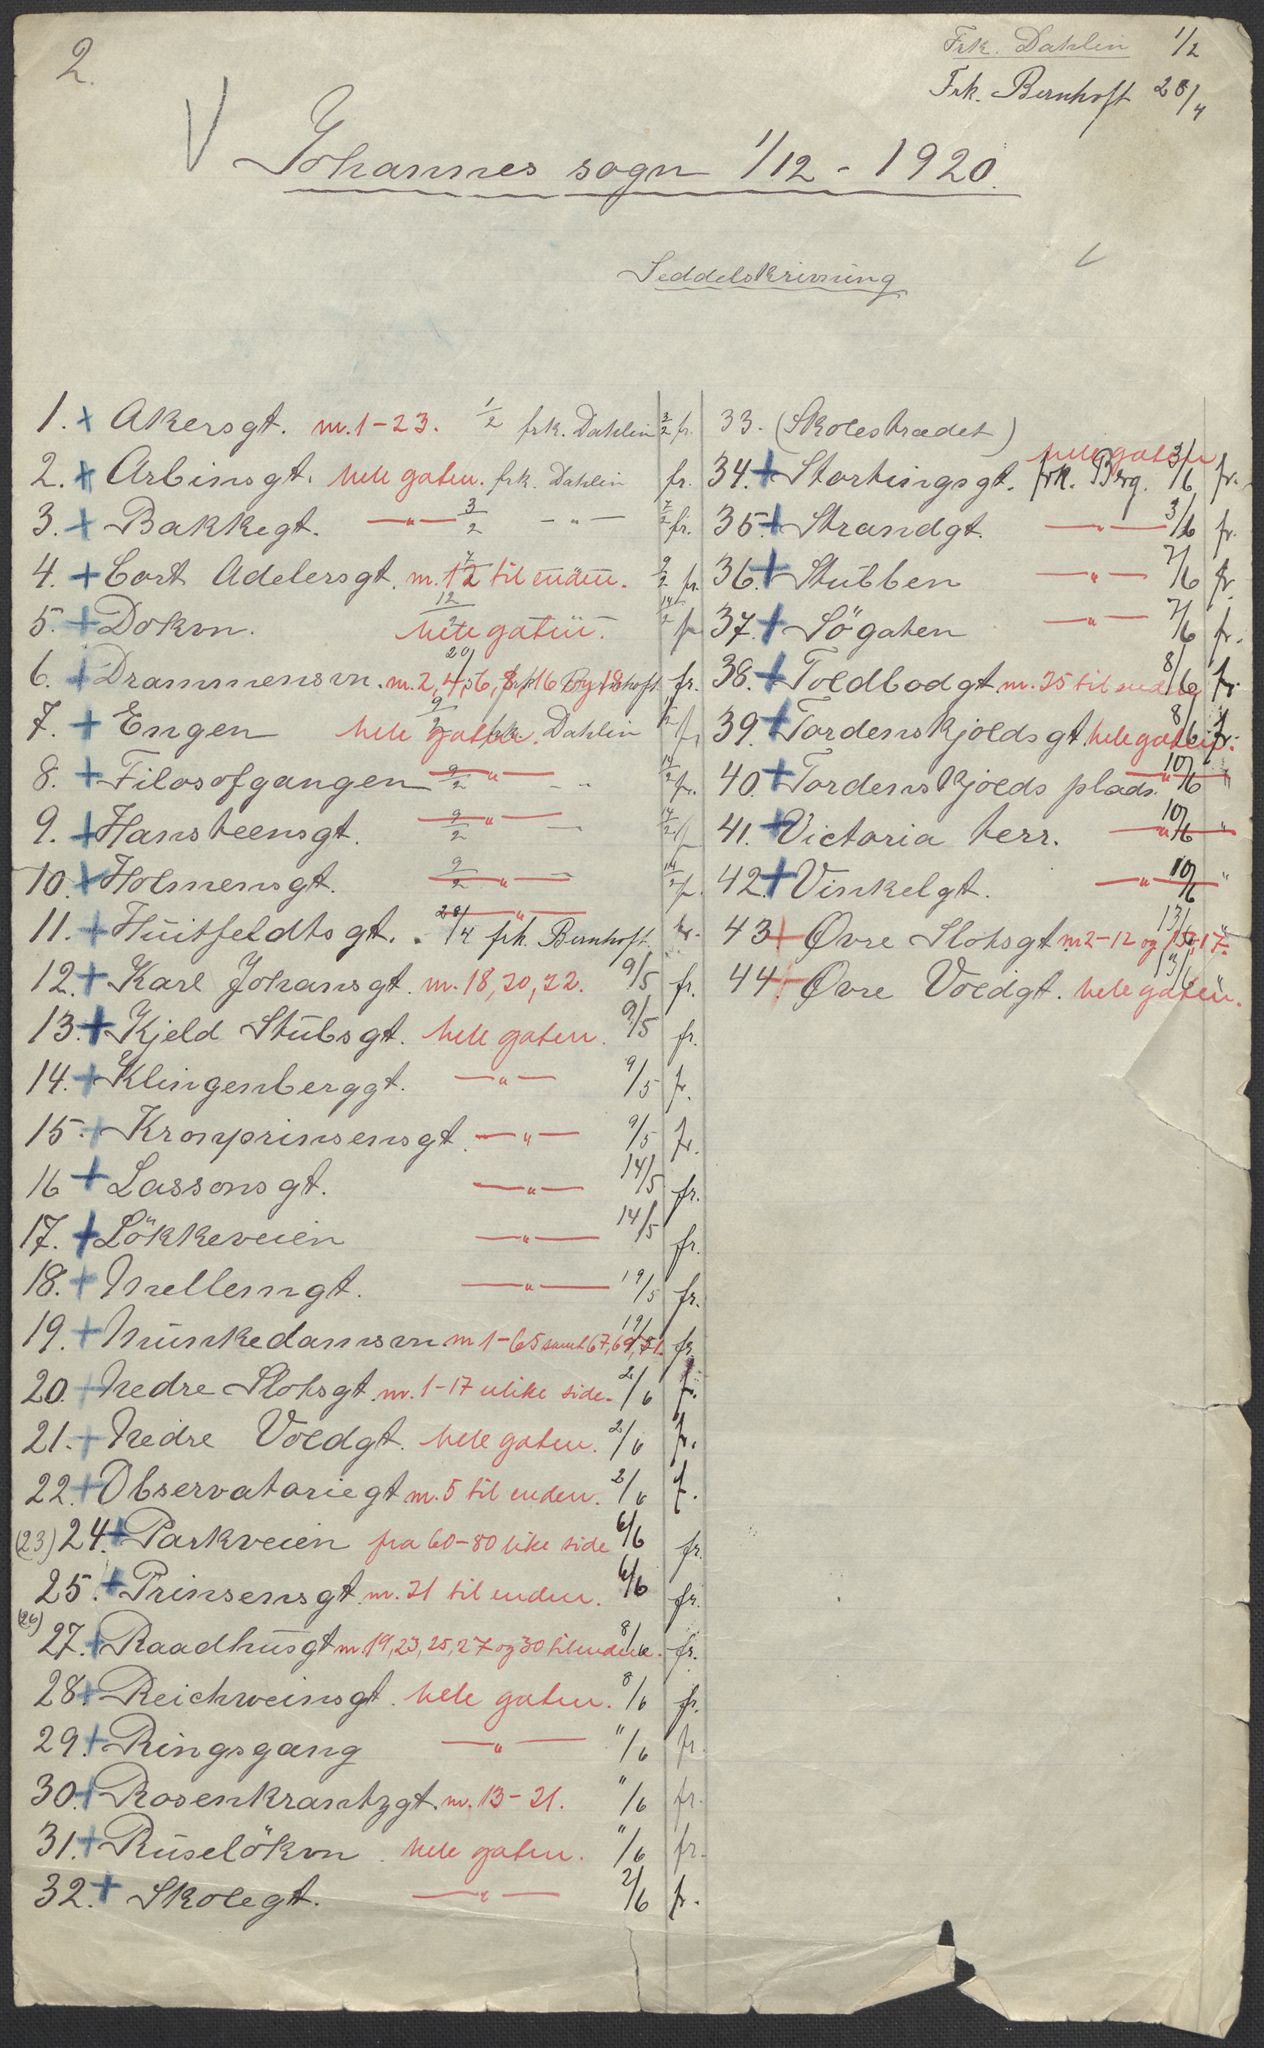 2.
Frk. Dahlin 1/2
Frk. Bernhoft 28/4
V Johannes sogn 1/12 - 1920.
Seddelskrivning
1. + Akersgt. nr. 1-23. 1/2 frk. Dahlin 3/2 fr.
2. + Arbinsgt. hele gaten. frk. Dahlin fr.
3. + Bakkegt. —"— 3/2 -"- 7/2 fr.
4. + Cort Adelersgt. nr. 12 til enden. 7/2 9/2 fr.
5. + Dokvn. hele gaten. 12/2 14/2 fr
6. + Drammensvn. nr. 2, 4, 6, 8, 16 og 18 20/4 frk. Bernhoft fr.
7. + Engen hele gaten. 9/2 frk. Dahlin fr
8. + Filosofgangen —"— 9/2 -"- 14/2 fr.
9. + Hansteensgt. —"— 9/2 — 14/2 fr
10. + Holmensgt. —"— 9/2 — 14/2 fr.
11. + Huitfeldtsgt. —"— 28/4 frk. Bernhoft. fr.
12. + Karl Johansgt. nr. 18, 20, 22. 9/5 fr.
13. + Kjeld Stubsgt. hele gaten. 9/5 fr.
14. + Klingenberggt. —"— 9/5 fr.
15. + Kronprinsensgt. —"— 9/5 fr.
16 + Lassonsgt. —"— 14/5 fr.
17. + Lökkeveien —"— 14/5 fr.
18. + Mellemgt. —"— 19/5 fr.
19. + Munkedamsvn nr 1-65 samt 67, 69, 71. 19/5 fr.
20. + Nedre Slotsgt. nr. 1-17 ulike side. 2/6 fr.
21. + Nedre Voldgt. hele gaten. 2/6 fr.
22. + Observatoriegt nr. 5 til enden. 2/6 f.
(23) 24. + Parkveien fra 60-80 like side 6/6 fr.
25. + Prinsensgt. nr. 21 til enden. 6/6 fr.
(26) 27. + Raadhusgt nr. 19, 23, 25, 27 og 30 til enden. 8/6 fr.
28. + Reichweinsgt. hele gaten. 8/6 fr.
29. + Ringsgang —"— "/6 fr.
30. + Rosenkrantzgt. nr. 13-21. "/6 fr.
31. + Ruselökvn. hele gaten. "/6 fr.
32. + Skolegt. —"— 2/6 fr.
33. (Skolestrædet)
34. + Stortingsgt. hele gaten frk. Berg. 3/6 fr.
35. + Strandgt. —"— 3/6 fr.
36. + Stubben —"— 7/6 fr.
37. + Sögaten —"— 7/6 fr.
38. + Toldbodgt nr. 35 til enden 8/6 fr.
39. + Tordenskjoldsgt. hele gaten. 8/6 fr.
40. + Tordenskjolds plads. —"— 10/6 "
41. + Victoria terr. —"— 10/6 "
42. + Vinkelgt. —"— 10/6 "
43 + Øvre Slotsgt nr 2-12 og 15, 17. 13/6
44 + Øvre Voldgt. hele gaten. 13/6